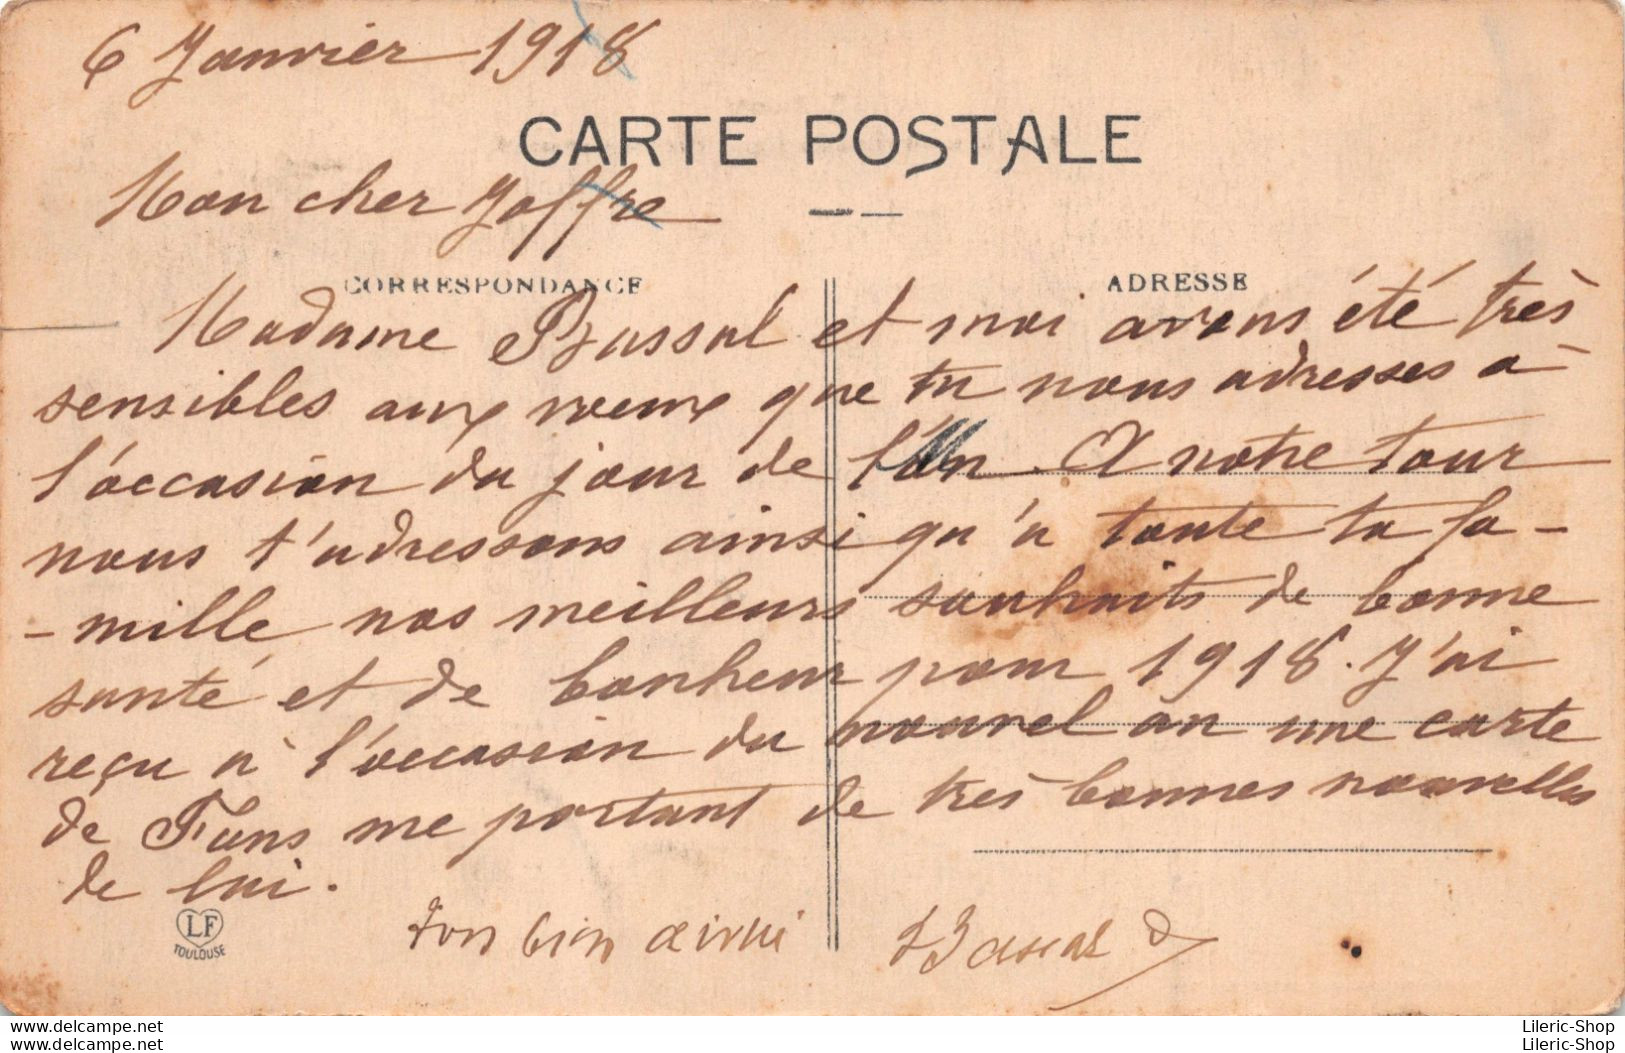 6 Janvier 1918
CARTE POSTALE
Mon cher Joffre
CORRESPONDANCE
ADRESSE
Madame Bassal et moi avons été très
sensibles aux voeux que tu nous adresses à
l'occasion du jour de l'an. A notre tour
nous t'adressons ainsi qu'à toute ta fa-
-mille nos meilleurs souhaits de bonne
santé et de bonheur pour 1918. J'ai
reçu à l'occasion du nouvel an une carte
de Fans me portant de très bonnes nouvelles
de lui.
LF
TOULOUSE
Ton bien aimé
Bassal
www.delcampe.net
Lileric-Shop
www.delcampe.net
Lileric-Shop